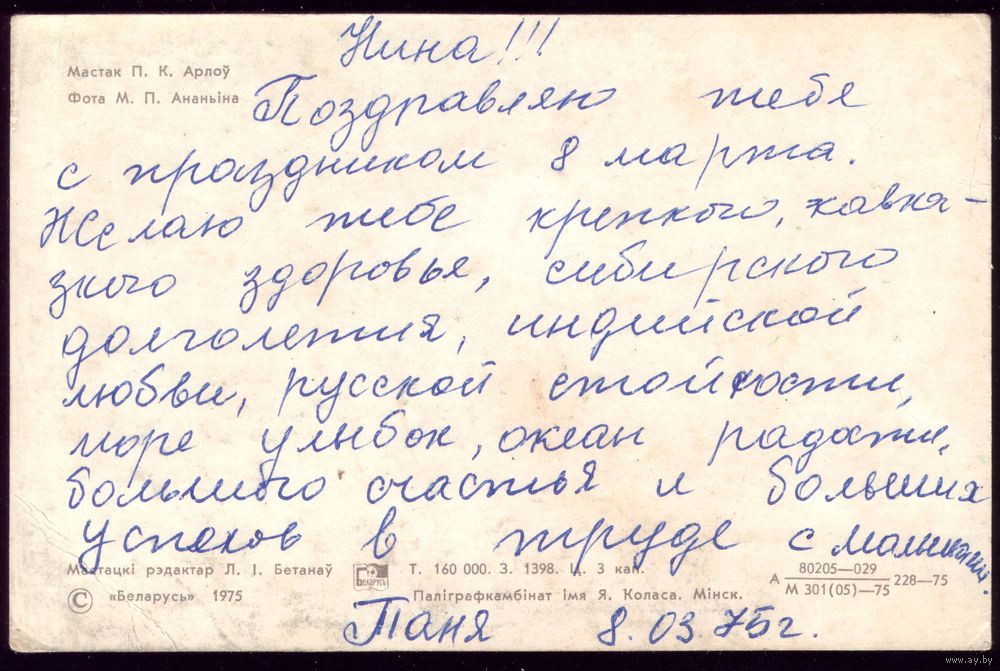 Нина!!!
Мастак П. К. Арлоў
Фота М. П. Ананьіна
Поздравляю тебя
с праздником 8 марта.
Желаю тебе крепкого, кавка-
зкого здоровья, сибирского
долголетия, индийской
любви, русской стойкости,
море улыбок, океан радости,
большого счастья и больших
успехов в труде с малышами.
Мастацкі рэдактар Л. І. Бетанаў
БЕЛАРУСЬ
Т. 160 000. З. 1398. Ц. 3 кап.
А 80205—029 / М 301(05)—75 228—75
© «Беларусь» 1975
Паліграфкамбінат імя Я. Коласа. Мінск.
Таня 8.03.75г.
www.ay.by